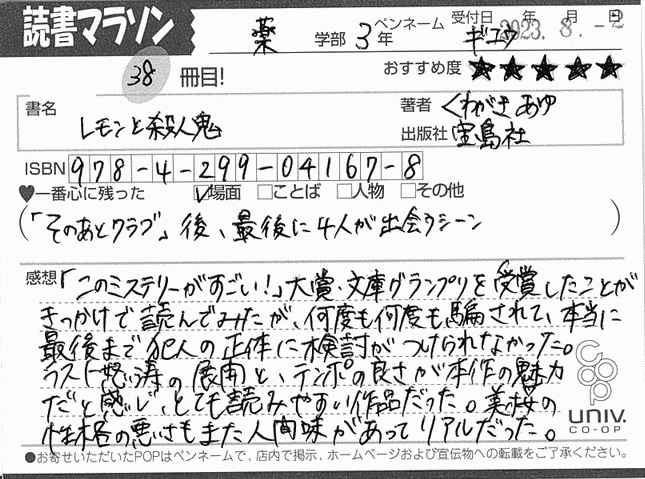 読書マラソン
薬 学部 3年 ペンネーム ギユウ 受付日 年 月 日 2023. 8. -2
38 冊目! おすすめ度 ★★★★★
書名 レモンと殺人鬼
著者 くわがきあゆ
出版社 宝島社
ISBN 978-4-299-04167-8
♥一番心に残った ☑場面 □ことば □人物 □その他
(「そのあとクラブ」後、最後に4人が出会うシーン)
感想 「このミステリーがすごい!」大賞・文庫グランプリを受賞したことが
きっかけで読んでみたが、何度も何度も騙されて、本当に
最後まで犯人の正体に検討がつけられなかった。
ラスト怒濤の展開と、テンポの良さが本作の魅力
だと感じ、とても読みやすい作品だった。美桜の
性格の悪さもまた人間味があってリアルだった。
coop
UNIV.
CO-OP
●お寄せいただいたPOPはペンネームで、店内で掲示、ホームページおよび宣伝物への転載をご了承ください。